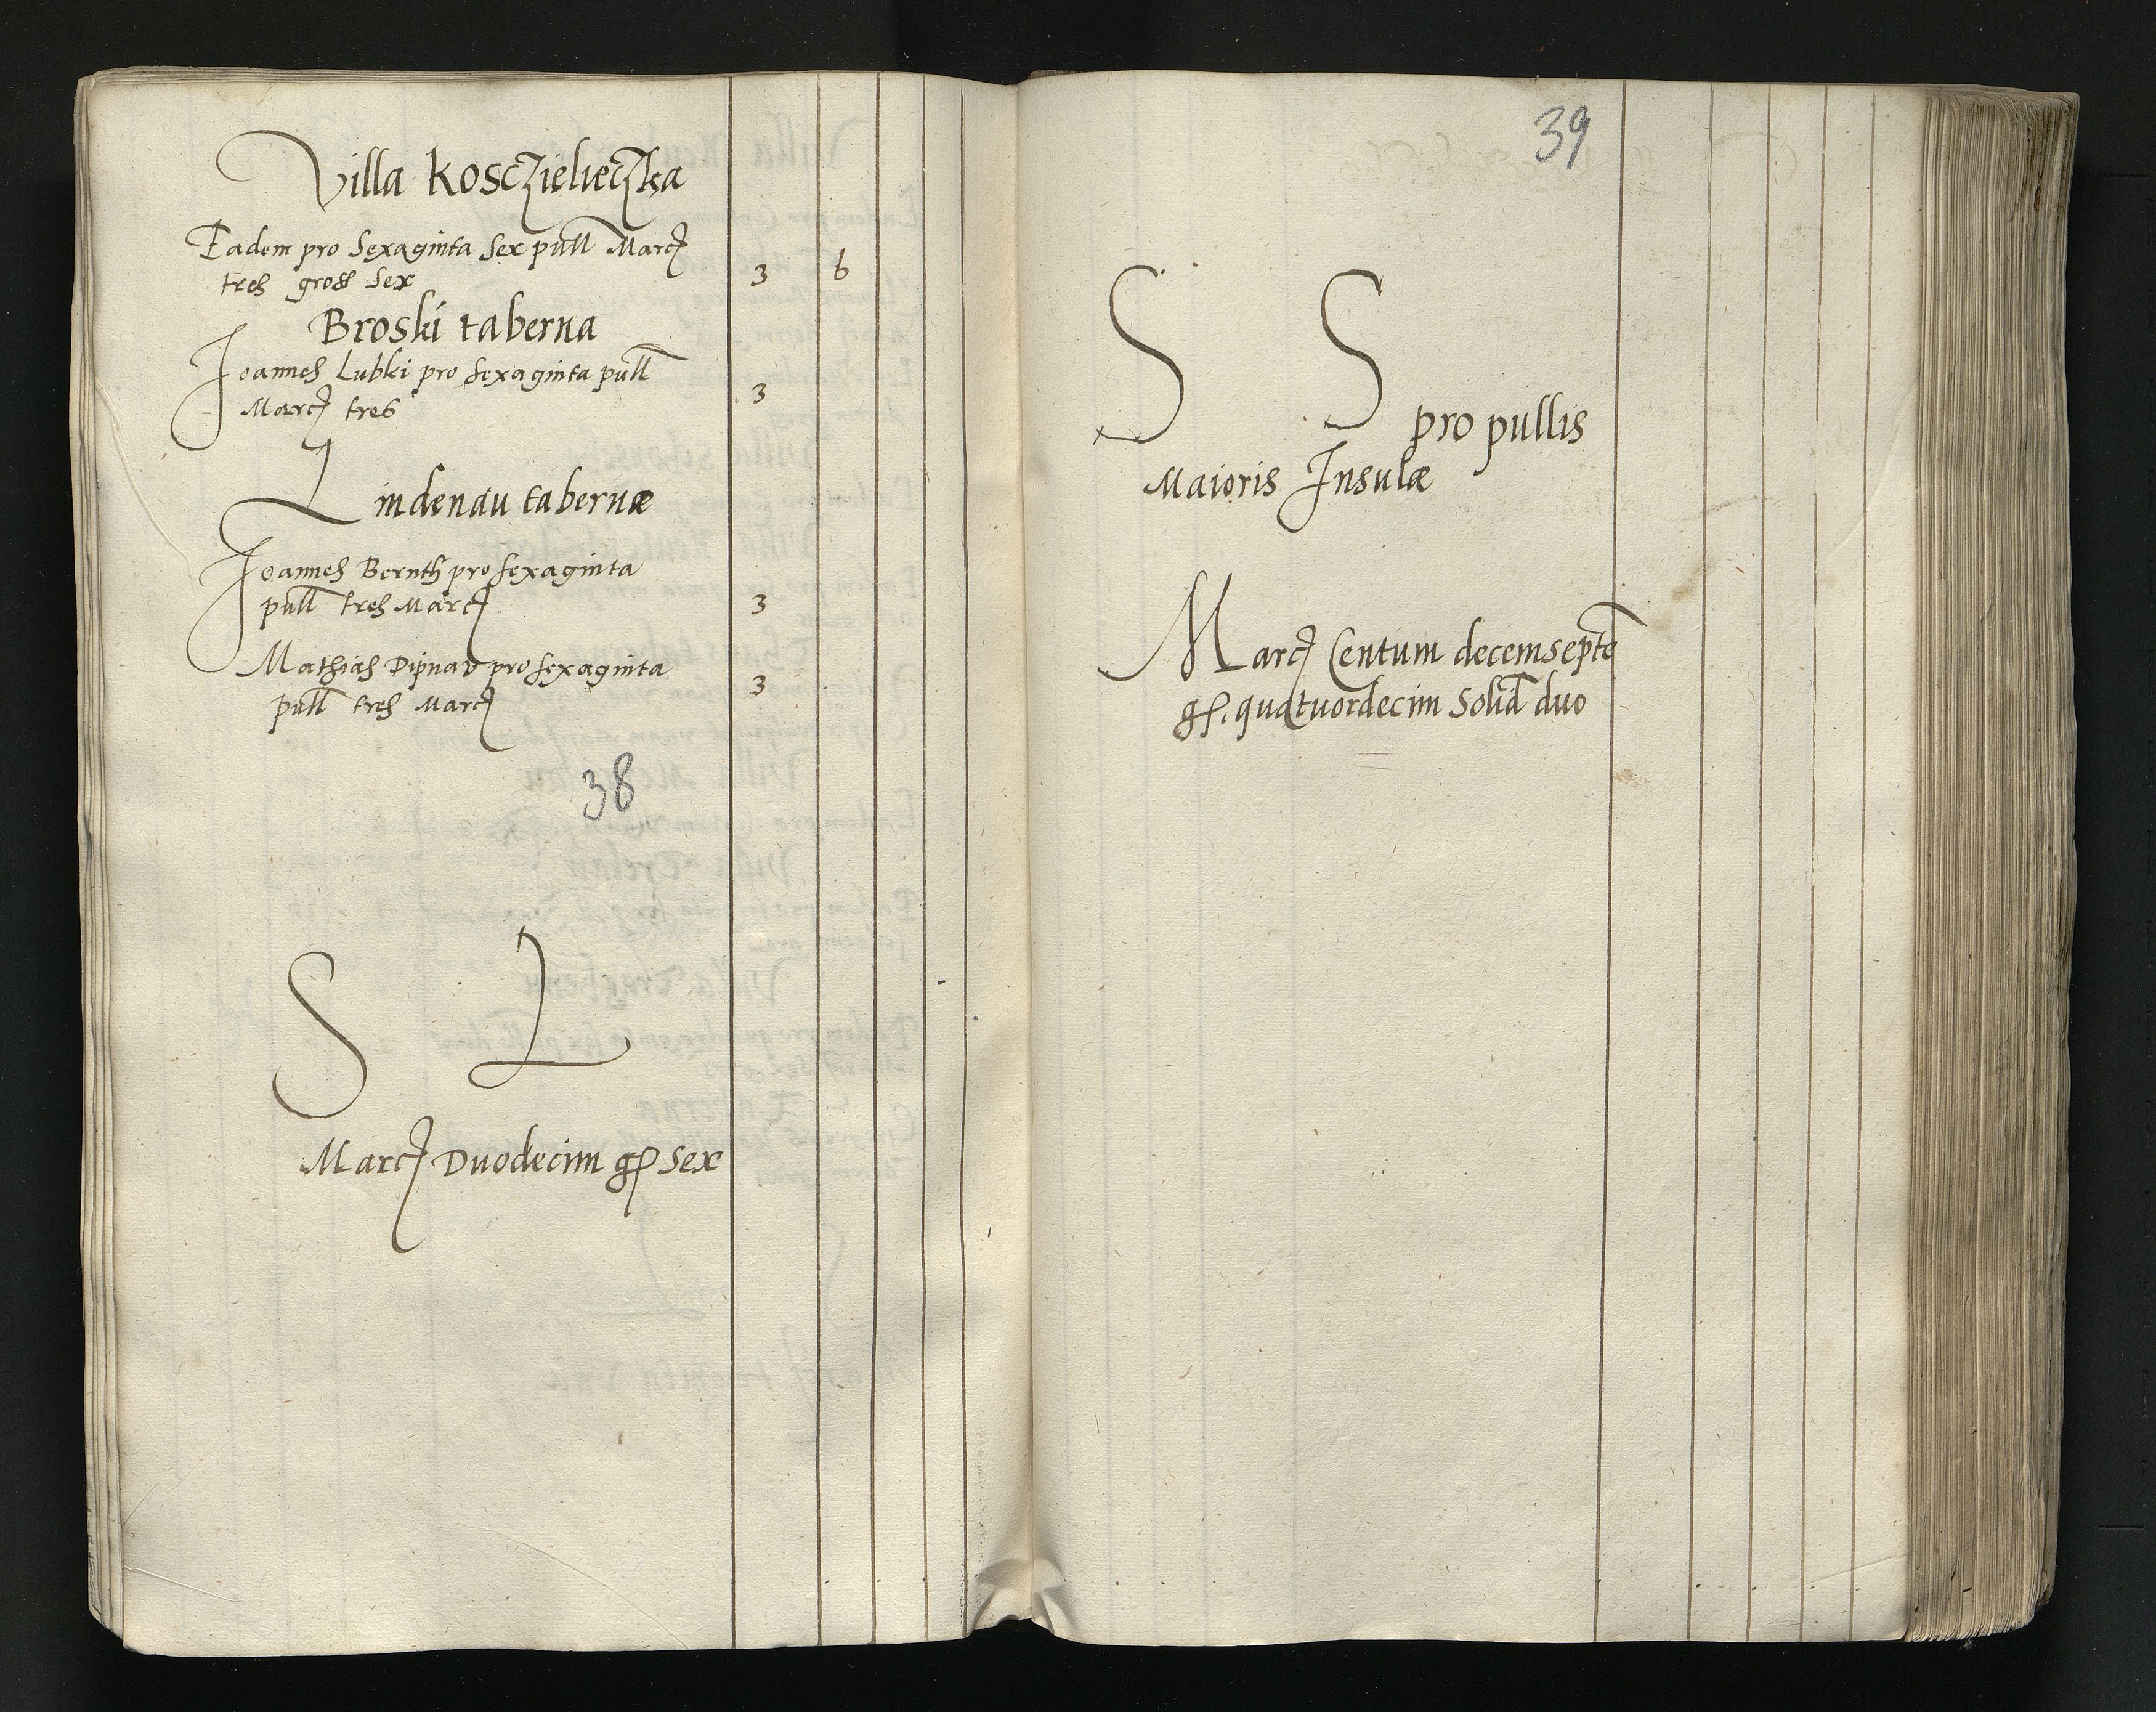 Villa Kosczieleczka
Eadem pro Sexaginta Sex pull Marc
tres gross Sex 3 6
Broski taberna
Joannes Lubki pro sexaginta pull
Marc tres 3
Lindenau tabernæ
Joannes Bernth pro sexaginta
pull tres Marc 3
Mathias Dipnau pro sexaginta
pull tres Marc 3
38
S L
Marc Duodecim gr Sex
39
S S pro pullis
Maioris Insulæ
Marc Centum decemsepte
gr. quatuordecim Solid duo